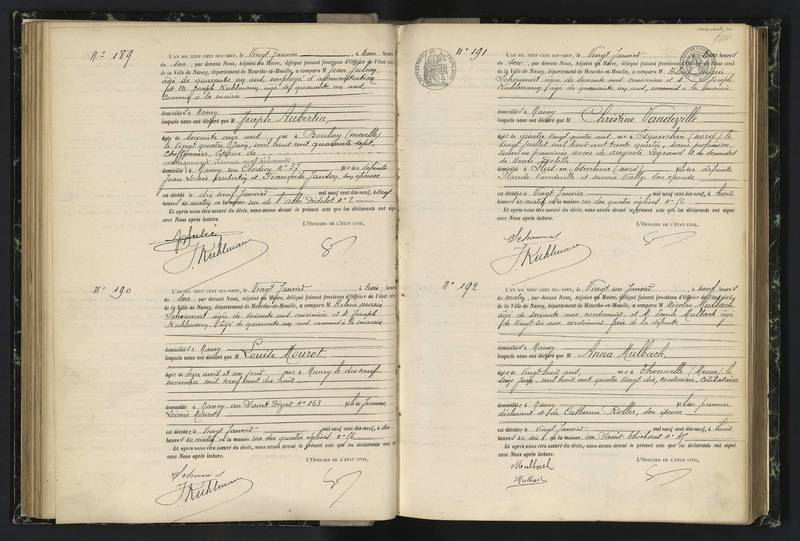 N° 189
L'AN MIL NEUF CENT DIX-NEUF, le Vingt Janvier, à trois heures
du soir, par devant Nous, Adjoint au Maire, délégué faisant fonctions d'Officier de l'état civil
de la Ville de Nancy, département de Meurthe-et-Moselle, a comparu M. Jean Julien
âgé de quarante six ans, employé d'administration
et M. Joseph Kuhlmann, âgé de quarante un ans,
commis à la mairie
domiciliés à Nancy
lesquels nous ont déclaré que M. Joseph Aubertin,
âgé de soixante onze ans, né à Boulay (Moselle)
le vingt quatre Juin, mil huit cent quarante sept,
chiffonnier, époux de
domicilié à Nancy, rue Clodion N° 37, fils de défunts
Jean Louis Aubertin et Françoise, son épouse
est décédé le dix neuf Janvier mil neuf cent dix-neuf, à neuf
heures du matin, en la maison rue de l'abbé Didelot N° 2
Et après nous être assuré du décès, nous avons dressé le présent acte que les déclarants ont signé
avec Nous après lecture.
L'OFFICIER DE L'ÉTAT CIVIL,
J. Kuhlmann
N° 190
L'AN MIL NEUF CENT DIX-NEUF, le Vingt Janvier, à trois heures
du soir, par devant Nous, Adjoint au Maire, délégué faisant fonctions d'Officier de l'état civil
de la Ville de Nancy, département de Meurthe-et-Moselle, a comparu M. Hélène Marie
Schoumert âgée de soixante ans, couturière et M. Joseph
Kuhlmann, âgé de quarante un ans, commis à la mairie
domiciliés à Nancy
lesquels nous ont déclaré que M. Louise Mourot
âgée de deux mois et un jour, née à Nancy le dix neuf
novembre mil neuf cent dix huit
domiciliée à Nancy, rue Saint Dizier N° 163, fille de Jeanne
Mourot
est décédée le Vingt Janvier mil neuf cent dix-neuf, à dix
heures du matin, en la maison rue des quatre églises N° 56
Et après nous être assuré du décès, nous avons dressé le présent acte que les déclarants ont signé
avec Nous après lecture.
L'OFFICIER DE L'ÉTAT CIVIL,
Schoumert
J. Kuhlmann
N° 191
L'AN MIL NEUF CENT DIX-NEUF, le Vingt Janvier, à trois heures
du soir, par devant Nous, Adjoint au Maire, délégué faisant fonctions d'Officier de l'état civil
de la Ville de Nancy, département de Meurthe-et-Moselle, a comparu M. Hélène Marie
Schoumert âgée de soixante ans, couturière et M. Joseph
Kuhlmann, âgé de quarante un ans, commis à la mairie
domiciliés à Nancy
lesquels nous ont déclaré que M. Christine Vandeville
âgée de quatre vingt quatre ans, née à Esquerchin (Nord) le
vingt Juillet mil huit cent trente quatre, sans profession,
veuve en premières noces de Auguste Legrand et en secondes
de
domiciliée à Flers-en-Escrebieux (Nord), fille de défunts
Vandeville et Marie, son épouse
est décédée le Vingt Janvier mil neuf cent dix-neuf, à huit
heures du matin, en la maison rue des quatre églises N° 56
Et après nous être assuré du décès, nous avons dressé le présent acte que les déclarants ont signé
avec Nous après lecture.
L'OFFICIER DE L'ÉTAT CIVIL,
Schoumert
J. Kuhlmann
N° 192
L'AN MIL NEUF CENT DIX-NEUF, le Vingt un Janvier, à neuf heures
du matin, par devant Nous, Adjoint au Maire, délégué faisant fonctions d'Officier de l'état civil
de la Ville de Nancy, département de Meurthe-et-Moselle, a comparu M. Nicolas Mulbach,
âgé de soixante ans, cordonnier, et M. Emile Mulbach âgé
de vingt six ans, cordonnier, frère de la défunte
domiciliés à Nancy
lesquels nous ont déclaré que M. Anna Mulbach,
âgée de vingt huit ans, née à Thonnelle (Meuse) le
seize Juin, mil huit cent quatre vingt dix, couturière, célibataire
domiciliée à Nancy, fille du premier
déclarant et de Catherine Koller, son épouse
est décédée le Vingt Janvier mil neuf cent dix-neuf, à huit
heures du soir, en la maison rue Saint Thiébaut N° 35
Et après nous être assuré du décès, nous avons dressé le présent acte que les déclarants ont signé
avec Nous après lecture.
L'OFFICIER DE L'ÉTAT CIVIL,
Mulbach
Mulbach